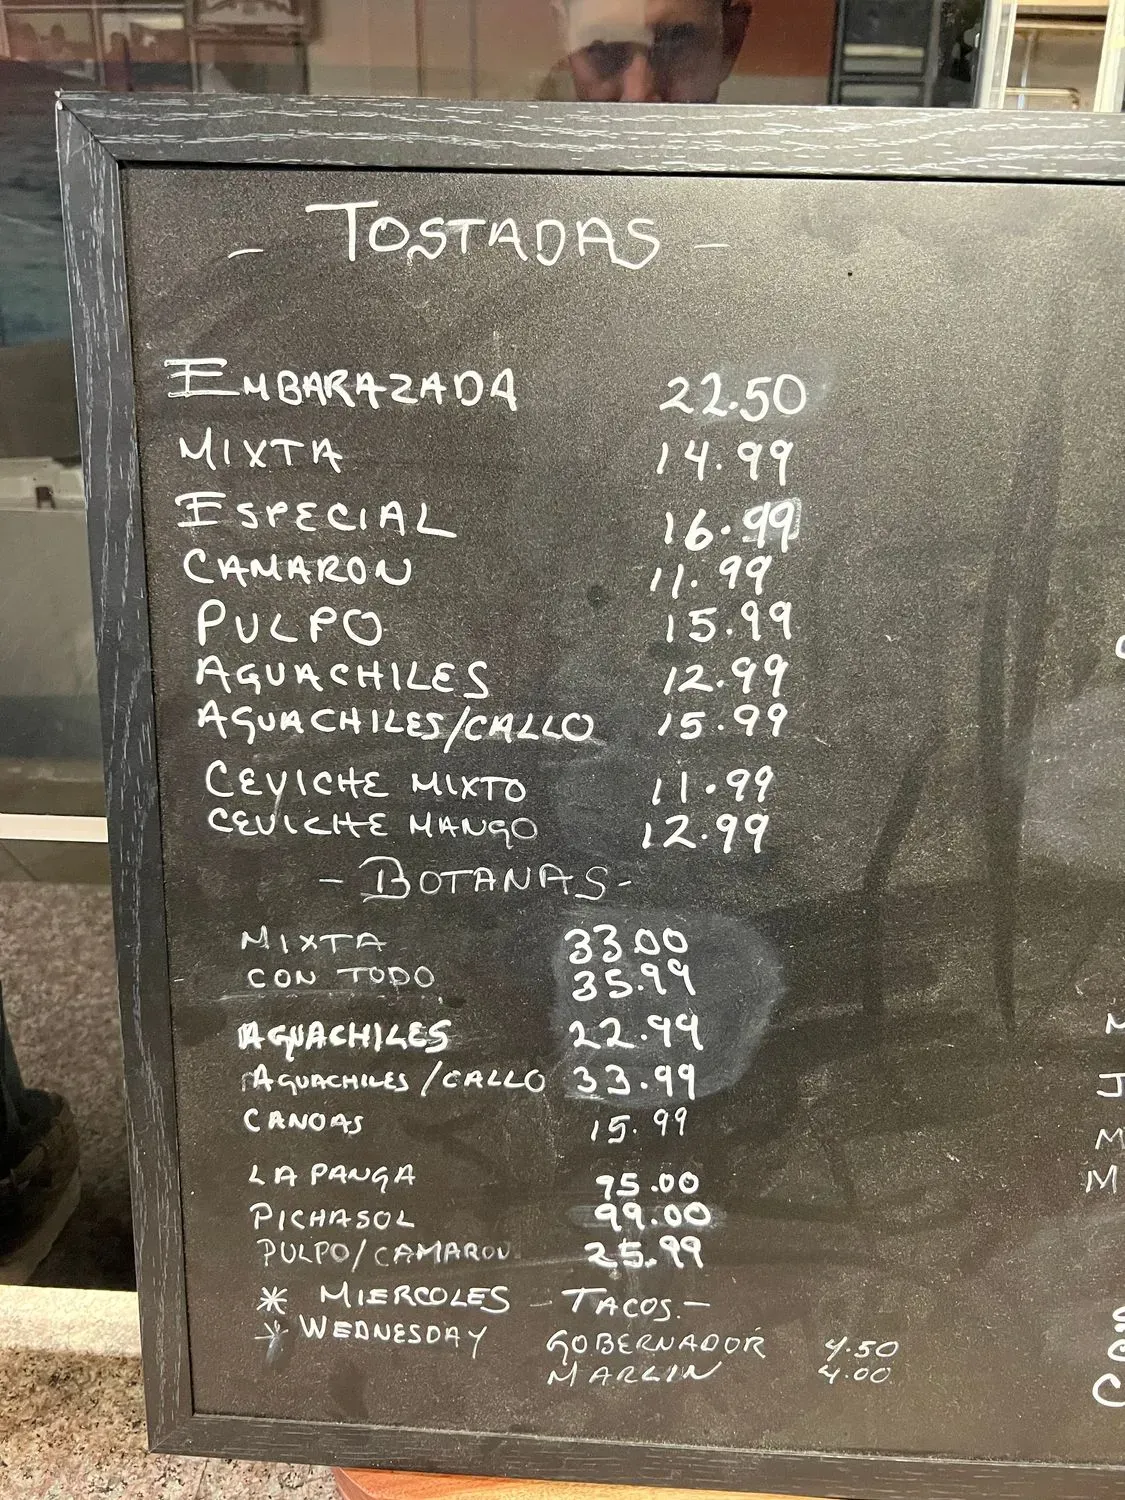 - TOSTADAS -
EMBARAZADA 22.50
MIXTA 14.99
ESPECIAL 16.99
CAMARON 11.99
PULPO 15.99
AGUACHILES 12.99
AGUACHILES/CALLO 15.99
CEVICHE MIXTO 11.99
CEVICHE MANGO 12.99
- BOTANAS -
MIXTA 33.00
CON TODO 35.99
AGUACHILES 22.99
AGUACHILES/CALLO 33.99
CANOAS 15.99
LA PANGA 95.00
PICHASOL 99.00
PULPO/CAMARON 25.99
* MIERCOLES - TACOS. -
* WEDNESDAY GOBERNADOR 4.50
MARLIN 4.00